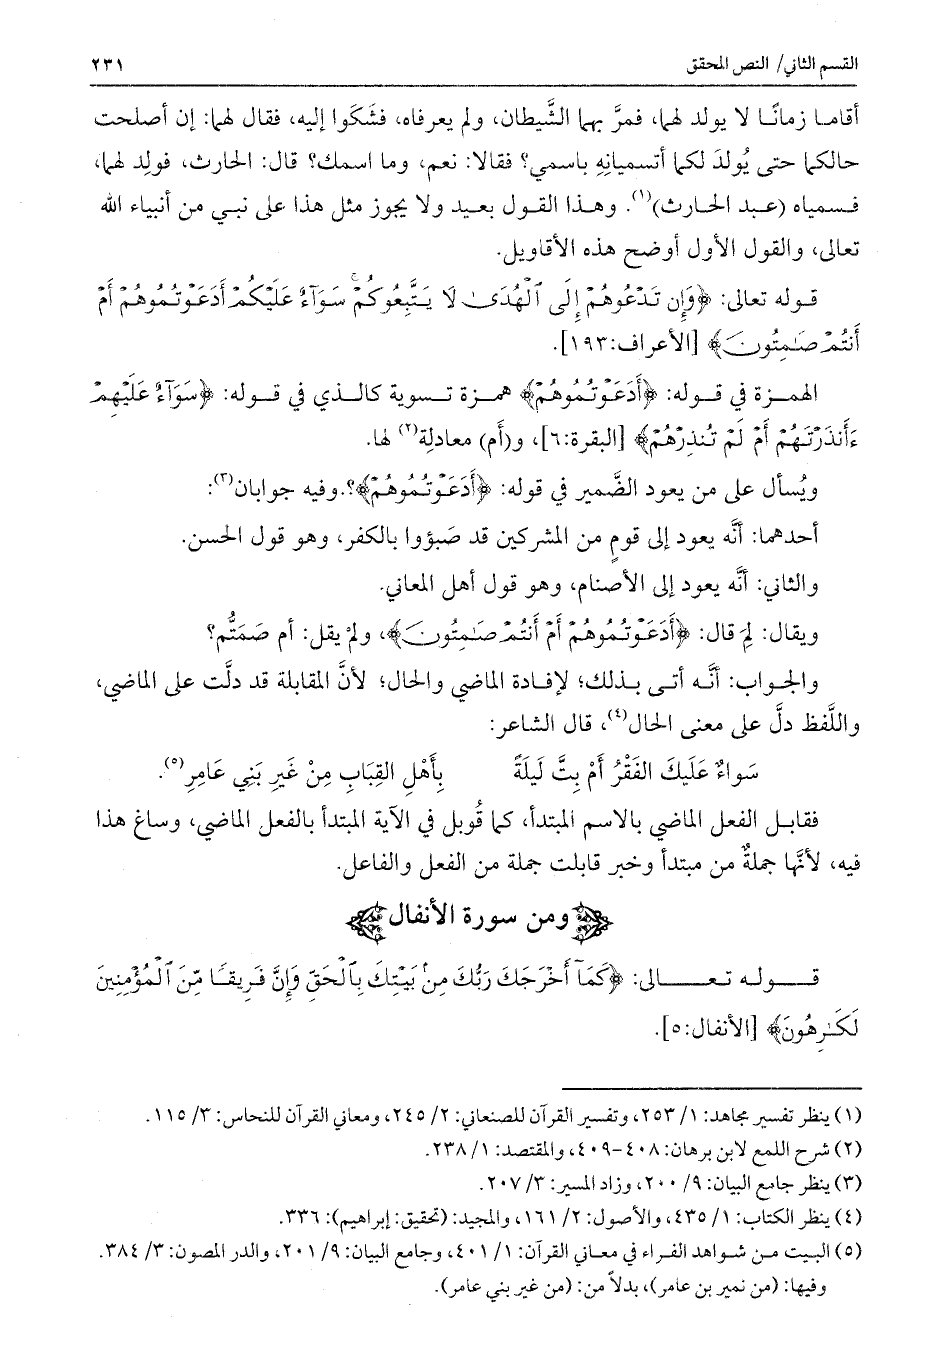 القسم الثاني/ النص المحقق ٢٣١
أقاما زمانًا لا يولد لهما، فمرَّ بهما الشَّيطان، ولم يعرفاه، فشَكَوا إليه، فقال لهما: إن أصلحت
حالكما حتى يُولدَ لكما أتسميانِهِ باسمي؟ فقالا: نعم، وما اسمك؟ قال: الحارث، فولِد لهما،
فسمياه (عبد الحارث)(١). وهذا القول بعيد ولا يجوز مثل هذا على نبي من أنبياء الله
تعالى، والقول الأول أوضح هذه الأقاويل.
قوله تعالى: ﴿وَإِن تَدْعُوهُمْ إِلَى ٱلْهُدَىٰ لَا يَتَّبِعُوكُمْ ۚ سَوَآءٌ عَلَيْكُمْ أَدَعَوْتُمُوهُمْ أَمْ
أَنتُمْ صَٰمِتُونَ﴾ [الأعراف:١٩٣].
الهمزة في قوله: ﴿أَدَعَوْتُمُوهُمْ﴾ همزة تسوية كالذي في قوله: ﴿سَوَآءٌ عَلَيْهِمْ
ءَأَنذَرْتَهُمْ أَمْ لَمْ تُنذِرْهُمْ﴾ [البقرة:٦]، و(أم) معادلة(٢) لها.
ويُسأل على من يعود الضَّمير في قوله: ﴿أَدَعَوْتُمُوهُمْ﴾؟.وفيه جوابان(٣):
أحدهما: أنَّه يعود إلى قومٍ من المشركين قد صَبؤوا بالكفر، وهو قول الحسن.
والثاني: أنَّه يعود إلى الأصنام، وهو قول أهل المعاني.
ويقال: لِمَ قال: ﴿أَدَعَوْتُمُوهُمْ أَمْ أَنتُمْ صَٰمِتُونَ﴾، ولمْ يقل: أم صَمَتُّم؟
والجواب: أنَّه أتى بذلك؛ لإفادة الماضي والحال؛ لأنَّ المقابلة قد دلَّت على الماضي،
واللَّفظ دلَّ على معنى الحال(٤)، قال الشاعر:
سَواءٌ عَلَيكَ الفَقْرُ أَمْ بِتَّ لَيلَةً بِأَهْلِ القِبَابِ مِنْ غَيرِ بَنِي عَامِرِ(٥).
فقابل الفعل الماضي بالاسم المبتدأ، كما قُوبل في الآية المبتدأ بالفعل الماضي، وساغ هذا
فيه، لأنَّها جملةٌ من مبتدأ وخبر قابلت جملة من الفعل والفاعل.
ومن سورة الأنفال
قوله تعالى: ﴿كَمَآ أَخْرَجَكَ رَبُّكَ مِنۢ بَيْتِكَ بِٱلْحَقِّ وَإِنَّ فَرِيقًا مِّنَ ٱلْمُؤْمِنِينَ
لَكَٰرِهُونَ﴾ [الأنفال:٥].
(١) ينظر تفسير مجاهد: ١/ ٢٥٣، وتفسير القرآن للصنعاني: ٢/ ٢٤٥، ومعاني القرآن للنحاس: ٣/ ١١٥.
(٢) شرح اللمع لابن برهان: ٤٠٨-٤٠٩، والمقتصد: ١/ ٢٣٨.
(٣) ينظر جامع البيان: ٩/ ٢٠٠، وزاد المسير: ٣/ ٢٠٧.
(٤) ينظر الكتاب: ١/ ٤٣٥، والأصول: ٢/ ١٦١، والمجيد: (تحقيق: إبراهيم): ٣٣٦.
(٥) البيت من شواهد الفراء في معاني القرآن: ١/ ٤٠١، وجامع البيان: ٩/ ٢٠١، والدر المصون: ٣/ ٣٨٤.
وفيها: (من نمير بن عامر)، بدلاً من: (من غير بني عامر).